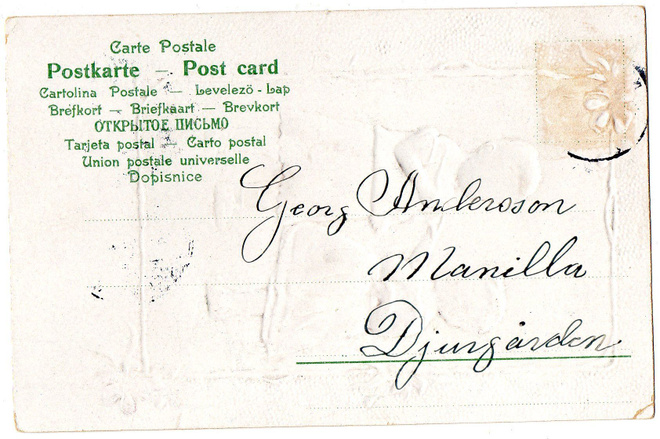 Carte Postale
Postkarte — Post card
Cartolina Postale — Levelező-Lap
Brefkort — Briefkaart — Brevkort
ОТКРЫТОЕ ПИСЬМО
Tarjeta postal — Carto postal
Union postale universelle
Dopisnice
Georg Anderson
Manilla
Djurgården.